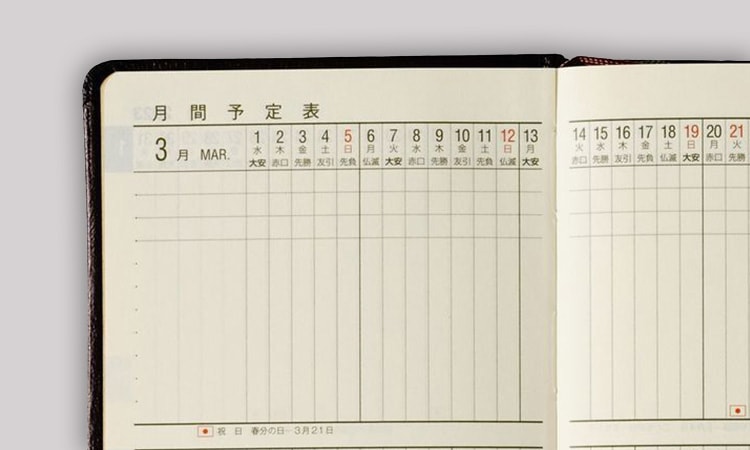 月間予定表
3月 MAR.
1 2 3 4 5 6 7 8 9 10 11 12 13
水 木 金 土 日 月 火 水 木 金 土 日 月
大安 赤口 先勝 友引 先負 仏滅 大安 赤口 先勝 友引 先負 仏滅 大安
14 15 16 17 18 19 20 21
火 水 木 金 土 日 月 火
赤口 先勝 友引 先負 仏滅 大安 赤口 先勝
祝 日 春分の日…3月21日